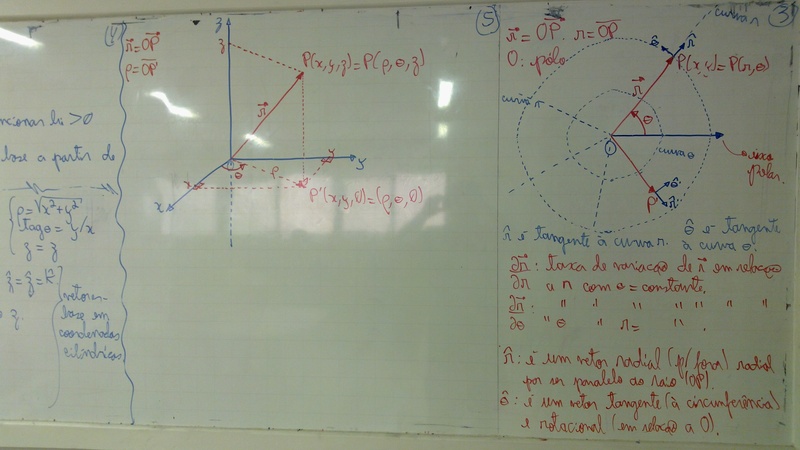 (4)
ncionar hi > 0
base a partir de
ρ = √x²+y²
tagθ = y/x
z = z
ẑ = ẑ = k̂
vetores-
base em
coordenadas
cilíndricas
(5)
r⃗ = OP⃗
ρ = OP'
z
z
P(x,y,z) = P(ρ,θ,z)
r⃗
y
y
θ
ρ
x
x
P'(x,y,0) = (ρ,θ,0)
(3)
r⃗ = OP⃗ r = OP
O: pólo
curva r
θ̂
r̂
P(x,y) = P(r,θ)
r⃗
curva r
θ
O
curva θ
eixo
polar
P'
θ̂'
r̂'
r̂ é tangente à curva r. θ̂ é tangente
à curva θ.
∂r⃗/∂r : taxa de variação de r⃗ em relação
a r com θ = constante.
∂r⃗/∂θ : " " " " " " "
" θ " r = " .
r̂: é um vetor radial (p/ fora) radial
por ser paralelo ao raio (OP).
θ̂: é um vetor tangente (à circunferência)
e rotacional (em relação a O).